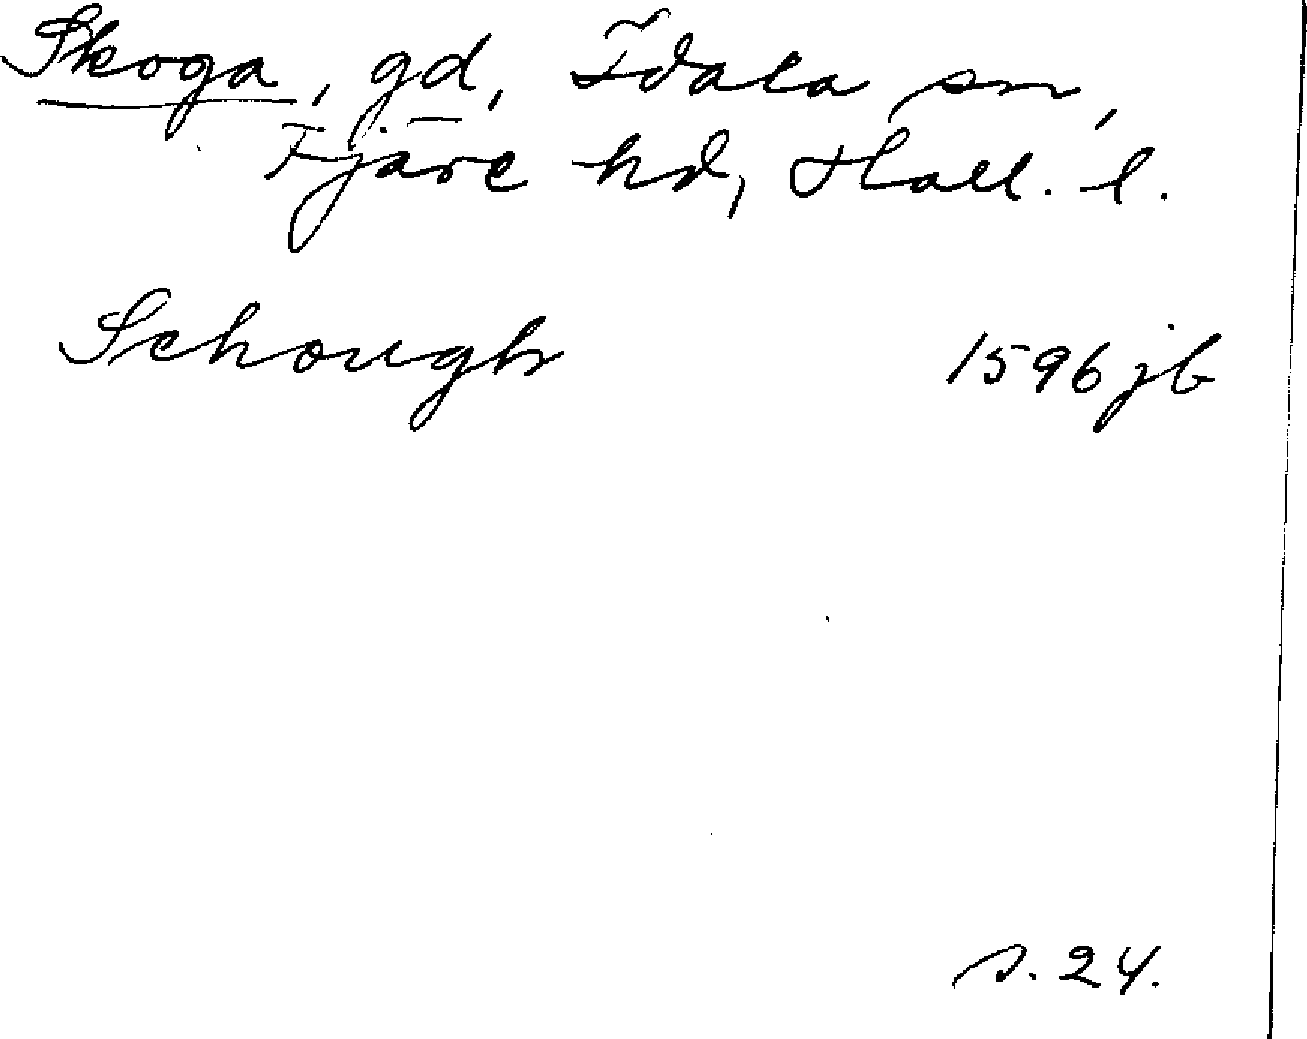 Skoga, gd, Idala sn,
Fjäre hd, Hall. l.
Schough 1596 jb
s. 24.